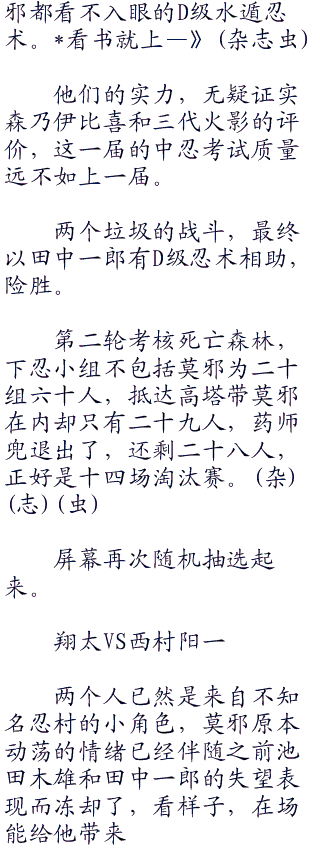 邪都看不入眼的D级水遁忍
术。*看书就上—》(杂志虫)
他们的实力，无疑证实
森乃伊比喜和三代火影的评
价，这一届的中忍考试质量
远不如上一届。
两个垃圾的战斗，最终
以田中一郎有D级忍术相助，
险胜。
第二轮考核死亡森林，
下忍小组不包括莫邪为二十
组六十人，抵达高塔带莫邪
在内却只有二十九人，药师
兜退出了，还剩二十八人，
正好是十四场淘汰赛。(杂)
(志)(虫)
屏幕再次随机抽选起
来。
翔太VS西村阳一
两个人已然是来自不知
名忍村的小角色，莫邪原本
动荡的情绪已经伴随之前池
田木雄和田中一郎的失望表
现而冻却了，看样子，在场
能给他带来